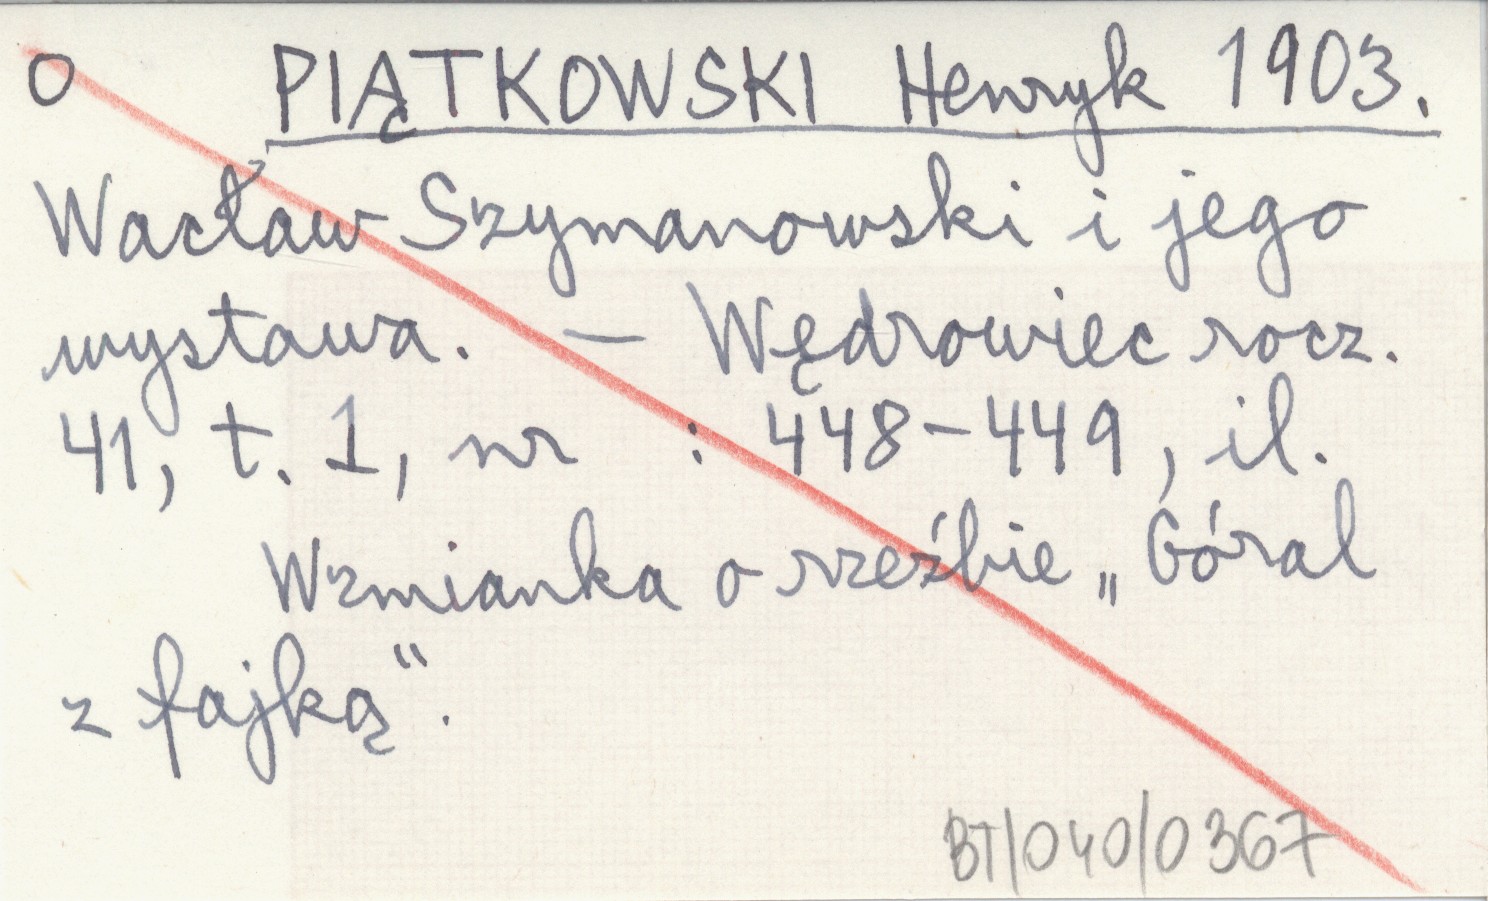 O PIĄTKOWSKI Henryk 1903.
Wacław Szymanowski i jego
wystawa. — Wędrowiec rocz.
41, t. 1, nr : 448-449, il.
Wzmianka o rzeźbie „Góral
z fajką“.
BT/040/0367